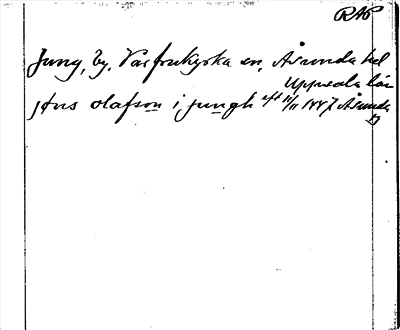 RAP
Ljung, by, Vårfrukyrka sn, Åsunda hd
Uppsala län
jöns olafson i jungh eft 11/11 1447 Åsunda